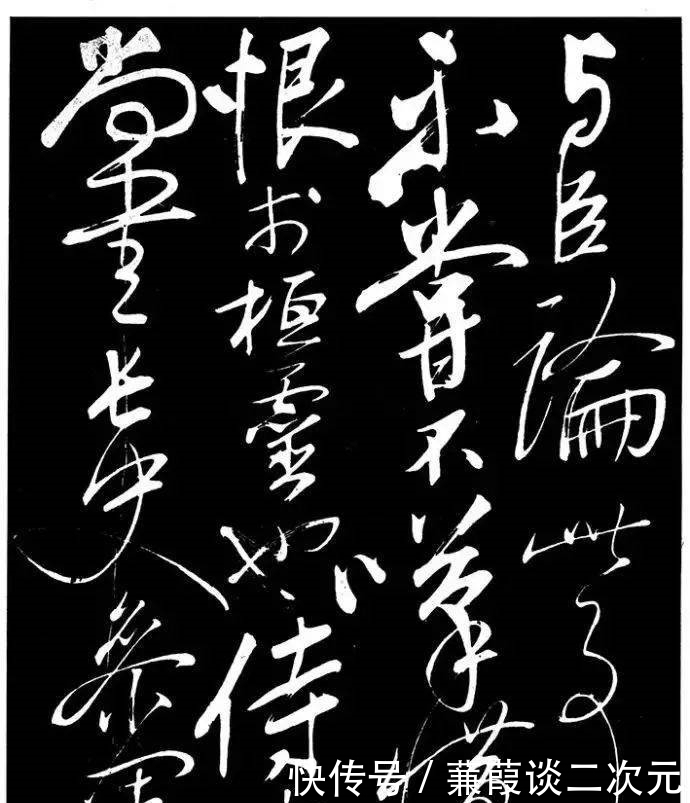 与臣論此事
未嘗不嘆
恨於桓靈也侍
尚書長史參軍
快传号／蒹葭谈二次元